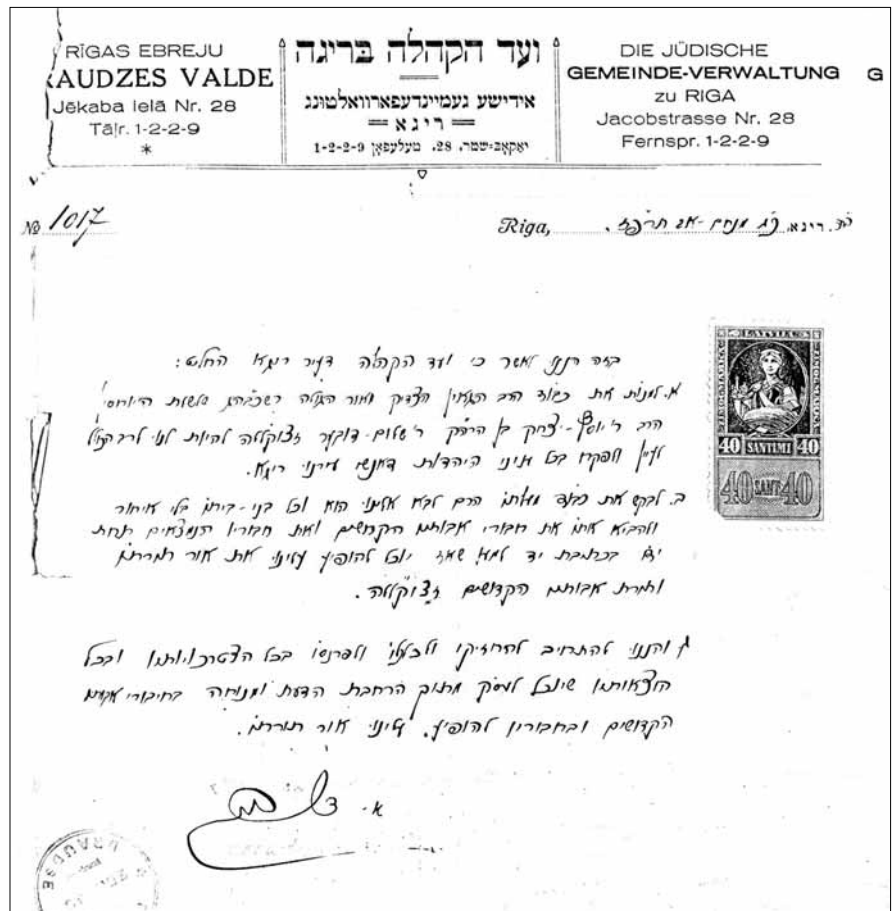 RĪGAS EBREJU
KAUDZES VALDE
Jēkaba ielā Nr. 28
Tāļr. 1-2-2-9
*
ועד הקהלה בריגה
אידישע געמיינדעפארוואלטונג
ריגא
יאקאב-שטר. 28, טעלעפאן 1-2-2-9
DIE JÜDISCHE
GEMEINDE-VERWALTUNG G
ZU RIGA
Jacobstrasse Nr. 28
Fernspr. 1-2-2-9
№ 1017
Riga, ריגא, מנחם-אב תרפ"ז.
בזה הננו לאשר כי ועד הקהלה דעיר ריגא החליט:
א. למנות את כבוד הרב הגאון הצדיק מאור הגולה שלשלת היוחסין
הרב ר' יוסף-יצחק בן הרה"ק ר' שלום-דובער זצוקללה"ה להיות לנו לרב
לעיין ולפקח בכל עניני היהדות דאנשי עירנו ריגא.
ב. לבקש את כבוד מעלתו הרם לבא אלינו הוא וכל בני-ביתו בלי איחור
ולהביא אתו את חבורי אבותיו הקדושים ואת חבוריו הנמצאים תחת
ידו בכתובת יד למען שאז יוכל להופיע עלינו את אור תורתו
ותורת אבותיו הקדושים זצוקללה"ה.
ג והננו להתחייב להחזיקו ולכלכלו ולפרנסו בכל הצטרכויותיו ובכל
הוצאותיו שיוכל לעסק מתוך הרחבת הדעת ומנוחה בחיבורי אבותיו
הקדושים ובחבוריו להופיע עלינו אור תורתו.
LATVIJA
40 SANTIMI 40
40 SANT 40